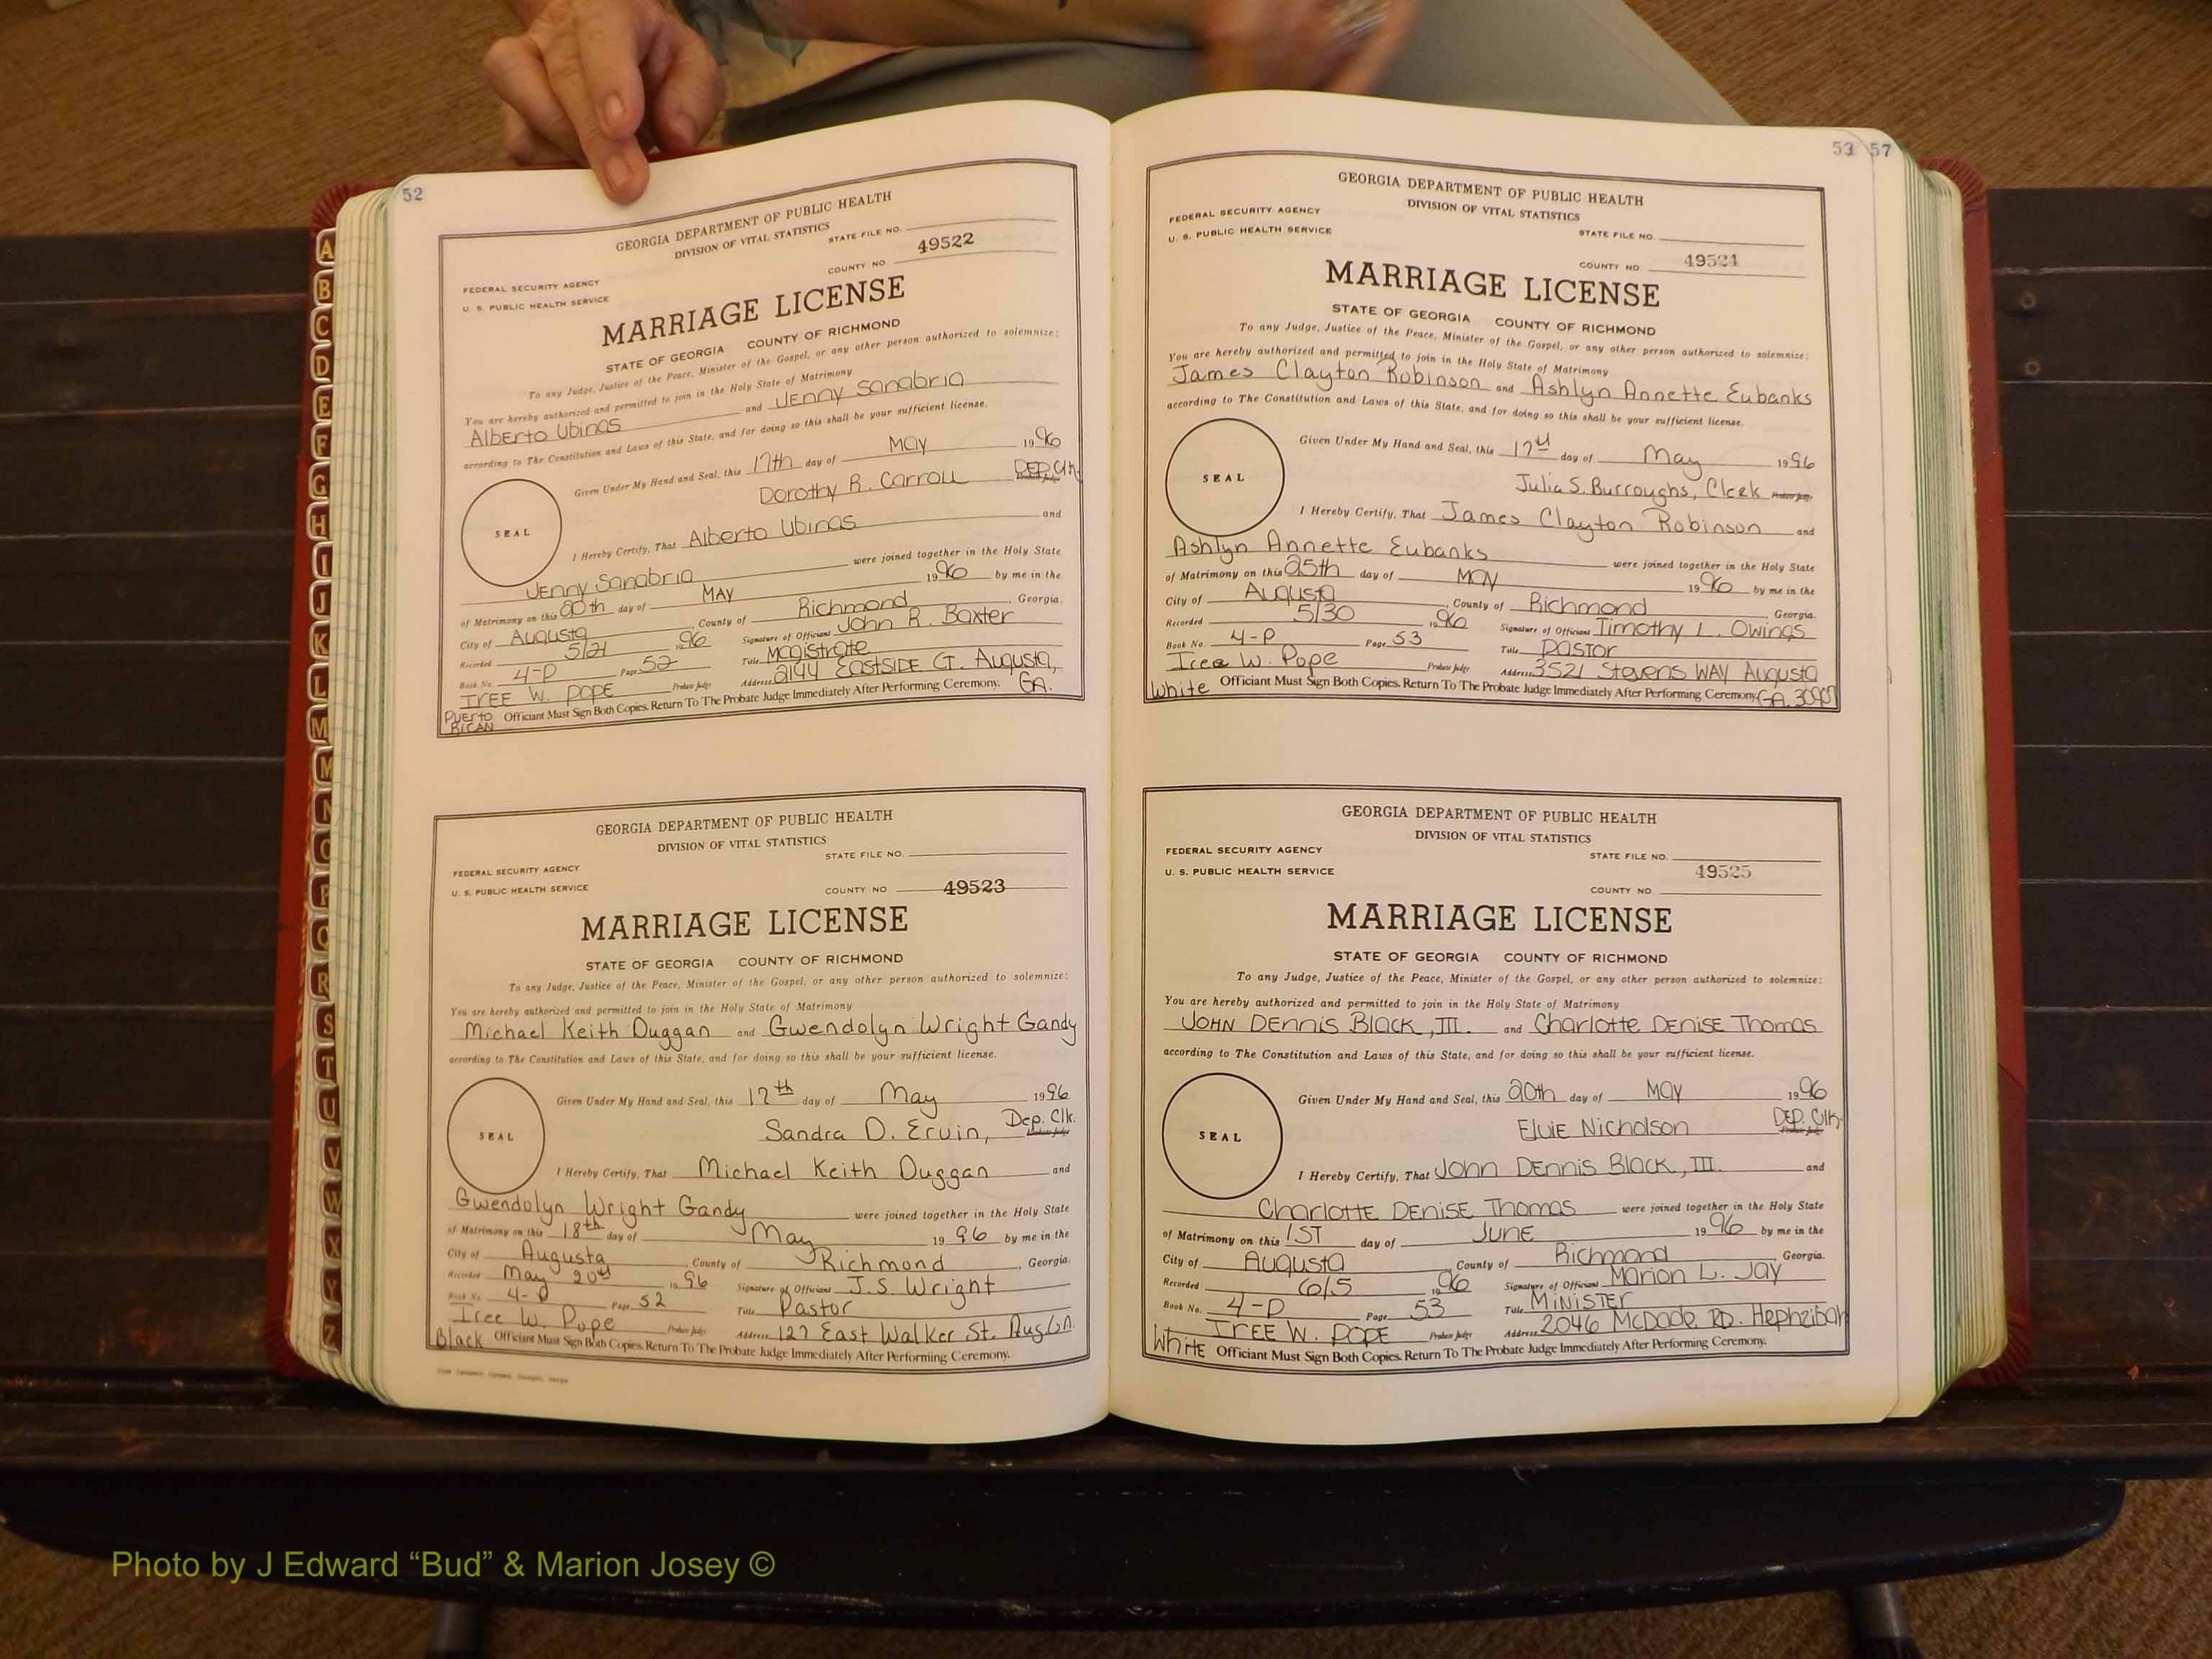 52
GEORGIA DEPARTMENT OF PUBLIC HEALTH
DIVISION OF VITAL STATISTICS
STATE FILE NO.
49522
COUNTY NO.
FEDERAL SECURITY AGENCY
U. S. PUBLIC HEALTH SERVICE
MARRIAGE LICENSE
STATE OF GEORGIA COUNTY OF RICHMOND
To any Judge, Justice of the Peace, Minister of the Gospel, or any other person authorized to solemnize:
You are hereby authorized and permitted to join in the Holy State of Matrimony
Alberto Ubinas and Jenny Sanabria
according to The Constitution and Laws of this State, and for doing so this shall be your sufficient license.
Given Under My Hand and Seal, this 17th day of MAY 1996
Dorothy R. Carroll DEP. Clk.
SEAL
I Hereby Certify, That Alberto Ubinas and
Jenny Sanabria were joined together in the Holy State
of Matrimony on this 20th day of MAY 1996 by me in the
City of Augusta, County of Richmond, Georgia.
Recorded 5/21 1996 Signature of Officiant John R. Baxter
Book No. 4-P Page 52 Title Magistrate
IREE W. POPE Probate Judge Address 2144 EASTSIDE CT. Augusta, GA.
PUERTO RICAN Officiant Must Sign Both Copies. Return To The Probate Judge Immediately After Performing Ceremony.
GEORGIA DEPARTMENT OF PUBLIC HEALTH
DIVISION OF VITAL STATISTICS
STATE FILE NO.
FEDERAL SECURITY AGENCY
U. S. PUBLIC HEALTH SERVICE
COUNTY NO 49523
MARRIAGE LICENSE
STATE OF GEORGIA COUNTY OF RICHMOND
To any Judge, Justice of the Peace, Minister of the Gospel, or any other person authorized to solemnize:
You are hereby authorized and permitted to join in the Holy State of Matrimony
Michael Keith Duggan and Gwendolyn Wright Gandy
according to The Constitution and Laws of this State, and for doing so this shall be your sufficient license.
Given Under My Hand and Seal, this 17th day of May 1996
Sandra D. Ervin, Dep. Clk.
SEAL
I Hereby Certify, That Michael Keith Duggan and
Gwendolyn Wright Gandy were joined together in the Holy State
of Matrimony on this 18th day of May 1996 by me in the
City of Augusta, County of Richmond, Georgia.
Recorded May 20th 1996 Signature of Officiant J.S. Wright
Book No. 4-P Page 52 Title Pastor
Iree W. Pope Probate Judge Address 127 East Walker St. Aug GA
Black Officiant Must Sign Both Copies. Return To The Probate Judge Immediately After Performing Ceremony.
53 57
GEORGIA DEPARTMENT OF PUBLIC HEALTH
DIVISION OF VITAL STATISTICS
FEDERAL SECURITY AGENCY
U. S. PUBLIC HEALTH SERVICE
STATE FILE NO.
COUNTY NO. 49524
MARRIAGE LICENSE
STATE OF GEORGIA COUNTY OF RICHMOND
To any Judge, Justice of the Peace, Minister of the Gospel, or any other person authorized to solemnize:
You are hereby authorized and permitted to join in the Holy State of Matrimony
James Clayton Robinson and Ashlyn Annette Eubanks
according to The Constitution and Laws of this State, and for doing so this shall be your sufficient license.
Given Under My Hand and Seal, this 17th day of May 1996
Julia S. Burroughs, Clerk
SEAL
I Hereby Certify, That James Clayton Robinson and
Ashlyn Annette Eubanks were joined together in the Holy State
of Matrimony on this 25th day of MAY 1996 by me in the
City of Augusta, County of Richmond Georgia.
Recorded 5/30 1996 Signature of Officiant Timothy L. Owings
Book No. 4-P Page 53 Title Pastor
Iree W. Pope Probate Judge Address 3521 Stevens WAY Augusta
White Officiant Must Sign Both Copies. Return To The Probate Judge Immediately After Performing Ceremony. GA. 30907
GEORGIA DEPARTMENT OF PUBLIC HEALTH
DIVISION OF VITAL STATISTICS
FEDERAL SECURITY AGENCY
STATE FILE NO.
U. S. PUBLIC HEALTH SERVICE
49525
COUNTY NO.
MARRIAGE LICENSE
STATE OF GEORGIA COUNTY OF RICHMOND
To any Judge, Justice of the Peace, Minister of the Gospel, or any other person authorized to solemnize:
You are hereby authorized and permitted to join in the Holy State of Matrimony
JOHN DENNIS Black, III. and Charlotte DENISE Thomas
according to The Constitution and Laws of this State, and for doing so this shall be your sufficient license.
Given Under My Hand and Seal, this 20th day of MAY 1996
ElviE Nicholson DEP. Clk.
SEAL
I Hereby Certify, That John DENNIS Black, III. and
Charlotte DENISE Thomas were joined together in the Holy State
of Matrimony on this 1ST day of JUNE 1996 by me in the
City of Augusta, County of Richmond, Georgia.
Recorded 6/5 1996 Signature of Officiant Marion L. Jay
Book No. 4-P Page 53 Title MINISTER
IREE W. POPE Probate Judge Address 2046 McDade RD. Hephzibah
White Officiant Must Sign Both Copies. Return To The Probate Judge Immediately After Performing Ceremony.
A
B
C
D
E
F
G
H
I
J
K
L
M
M
N
O
P
Q
R
S
T
U
V
W
X
Y
Z
Photo by J Edward “Bud” & Marion Josey ©